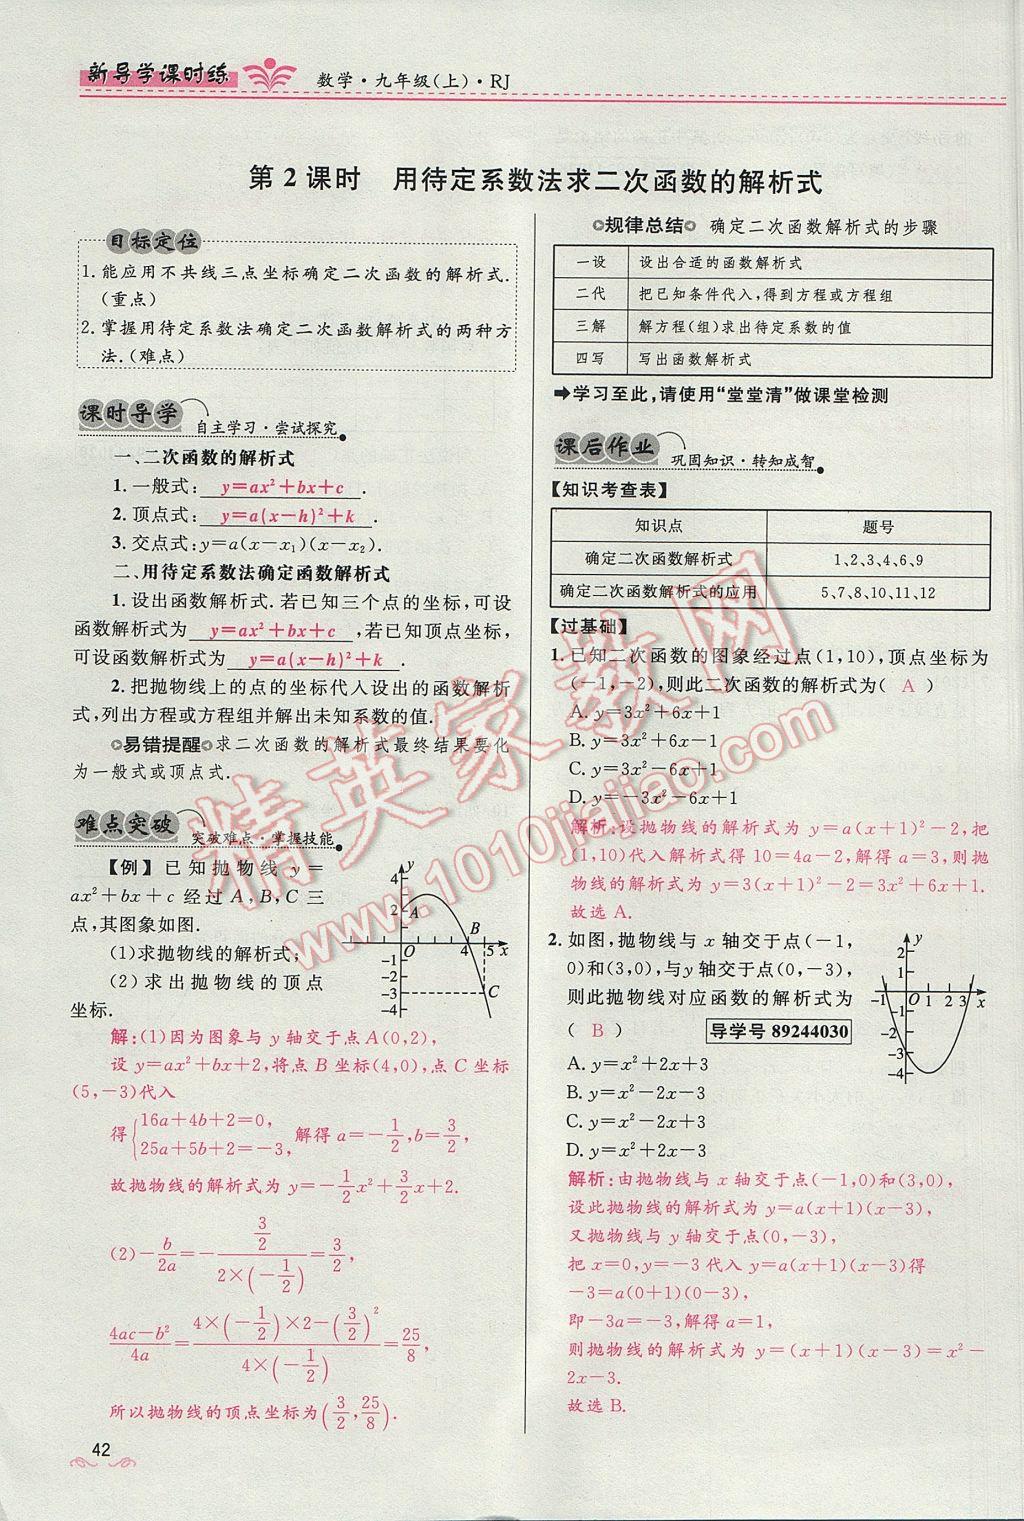 新导学课时练
数学·九年级(上)·RJ
第2课时 用待定系数法求二次函数的解析式
目标定位
1.能应用不共线三点坐标确定二次函数的解析式.
(重点)
2.掌握用待定系数法确定二次函数解析式的两种方
法.(难点)
课时导学
自主学习·尝试探究
一、二次函数的解析式
1.一般式: y=ax²+bx+c .
2.顶点式: y=a(x-h)²+k .
3.交点式:y=a(x-x₁)(x-x₂).
二、用待定系数法确定函数解析式
1.设出函数解析式.若已知三个点的坐标,可设
函数解析式为 y=ax²+bx+c ,若已知顶点坐标,
可设函数解析式为 y=a(x-h)²+k .
2.把抛物线上的点的坐标代入设出的函数解析
式,列出方程或方程组并解出未知系数的值.
易错提醒 求二次函数的解析式最终结果要化
为一般式或顶点式.
难点突破
突破难点·掌握技能
【例】已知抛物线 y=
ax²+bx+c 经过 A,B,C 三
点,其图象如图.
(1)求抛物线的解析式;
(2)求出抛物线的顶点
坐标.
y
4
2
A
B
O
4 5 x
-1
-2
-3
-4
C
解:(1)因为图象与 y 轴交于点 A(0,2),
设 y=ax²+bx+2,将点 B 坐标(4,0),点 C 坐标
(5,-3)代入
得{16a+4b+2=0, 25a+5b+2=-3, 解得 a=-1/2,b=3/2,
故抛物线的解析式为 y=-1/2x²+3/2x+2.
(2)-b/2a=-(3/2)/(2×(-1/2))=3/2,
(4ac-b²)/4a=(4×(-1/2)×2-(3/2)²)/(4×(-1/2))=25/8,
所以抛物线的顶点坐标为(3/2,25/8).
42
规律总结 确定二次函数解析式的步骤
一设 设出合适的函数解析式
二代 把已知条件代入,得到方程或方程组
三解 解方程(组)求出待定系数的值
四写 写出函数解析式
➡学习至此,请使用“堂堂清”做课堂检测
课后作业
巩固知识·转知成智
【知识考查表】
知识点 题号
确定二次函数解析式 1、2、3、4、6、9
确定二次函数解析式的应用 5、7、8、10、11、12
【过基础】
1.已知二次函数的图象经过点(1,10),顶点坐标为
(-1,-2),则此二次函数的解析式为( A )
A. y=3x²+6x+1
B. y=3x²+6x-1
C. y=3x²-6x+1
D. y=-3x²-6x+1
解析:设抛物线的解析式为 y=a(x+1)²-2,把
(1,10)代入解析式得 10=4a-2,解得 a=3,则抛
物线的解析式为 y=3(x+1)²-2=3x²+6x+1.
故选 A.
2.如图,抛物线与 x 轴交于点(-1,
0)和(3,0),与y轴交于点(0,-3),
则此抛物线对应函数的解析式为
( B ) 导学号 89244030
y
2
1
-1 O 1 2 3 x
-1
-2
-3
-4
A. y=x²+2x+3
B. y=x²-2x-3
C. y=x²-2x+3
D. y=x²+2x-3
解析:由抛物线与 x 轴交于点(-1,0)和(3,0),
设此抛物线的解析式为 y=a(x+1)(x-3),
又抛物线与 y 轴交于点(0,-3),
把 x=0,y=-3 代入 y=a(x+1)(x-3)得
-3=a(0+1)(0-3),
即-3a=-3,解得 a=1,
则抛物线的解析式为 y=(x+1)(x-3)=x²-
2x-3.
故选 B.
精英家教网
www.1010jiajiao.com